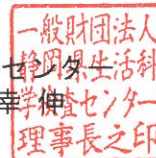 一般財団法人
静岡県生活科
学検査センター
理事長之印
センター
幸伸